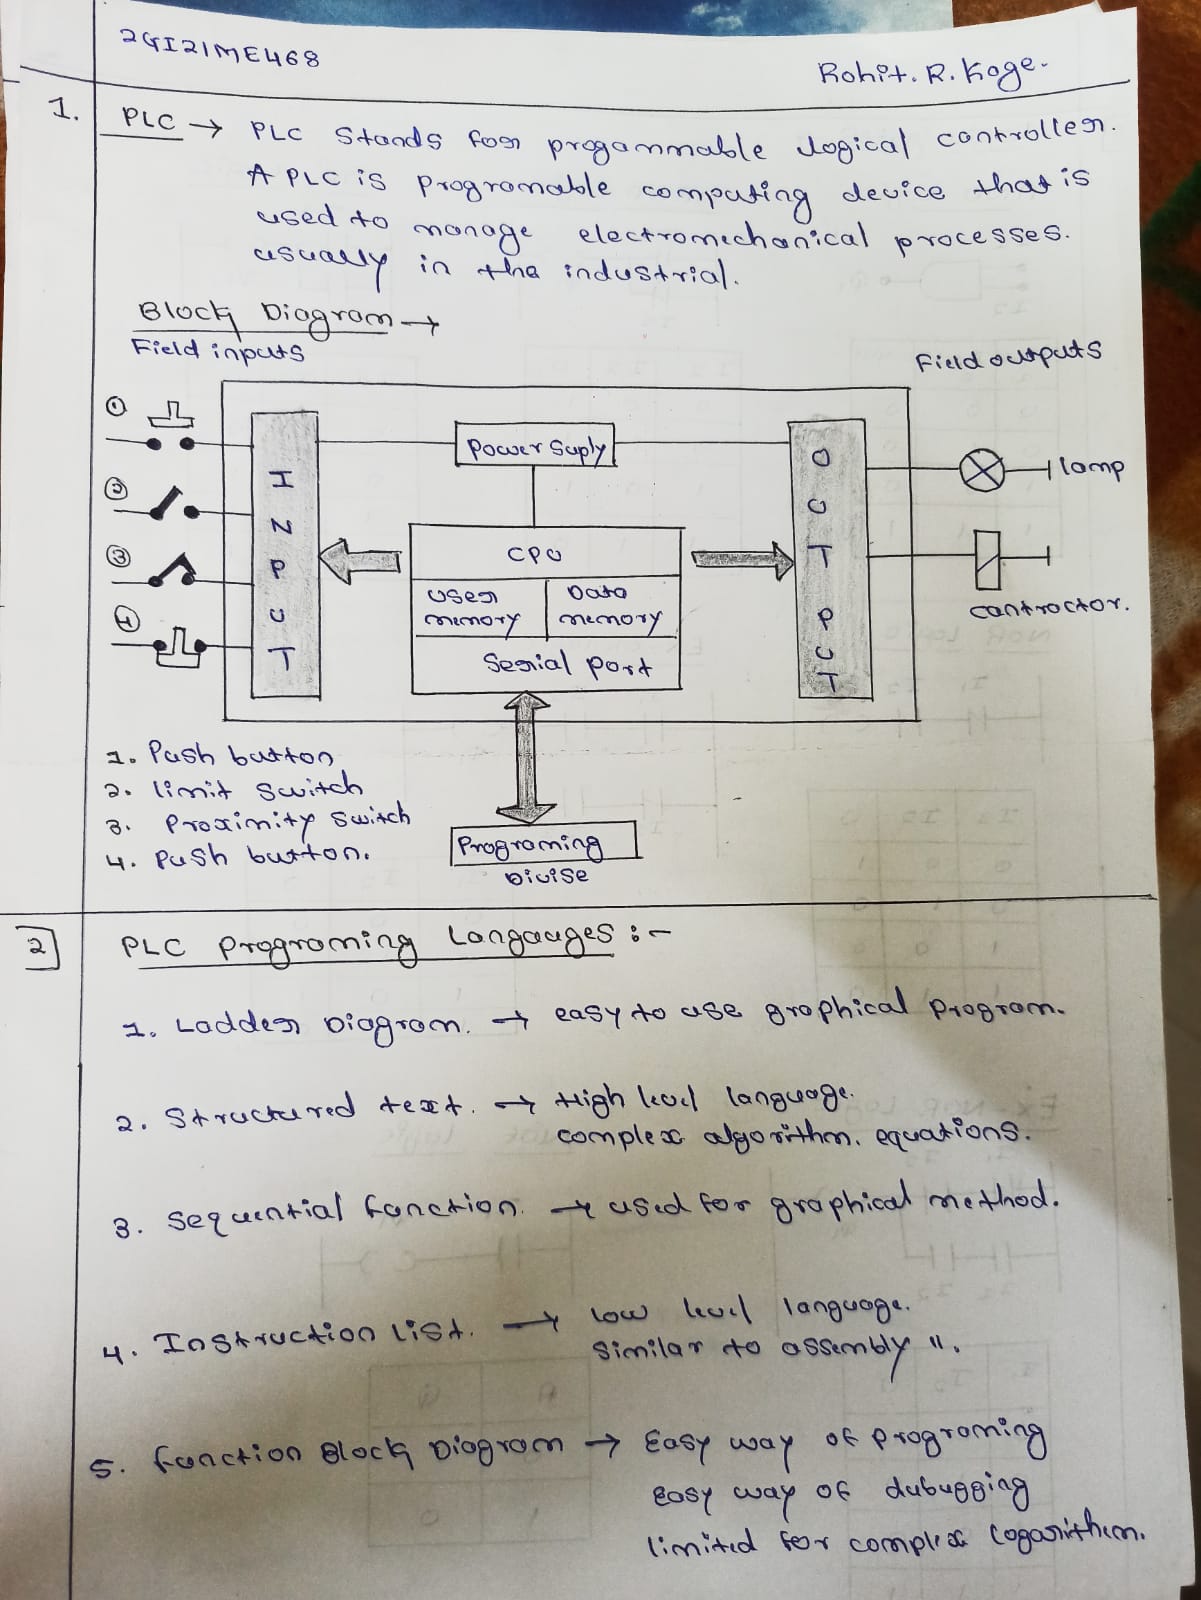 2GI21ME468
Rohit. R. Koge.
1.
PLC → PLC Stands for progammable logical controller.
A PLC is Programable computing device that is
used to manage electromechanical processes.
usually in the industrial.
Block Diagram →
Field inputs
Field outputs
1
2
3
4
INPUT
Power Suply
CPU
User memory
Data memory
Serial port
OUTPUT
lamp
contractor.
1. Push button
2. limit switch
3. Proximity switch
4. Push button.
Programing
Divise
2
PLC Programing Langauges :-
1. Ladder Diagram. → easy to use graphical Program.
2. Structured text. → High level language.
complex algorithm. equations.
3. Sequential function. → used for graphical method.
4. Instruction List. → low level language.
Similar to assembly ".
5. Function Block Diagram → Easy way of Programing
easy way of dubugging
limited for complex logarithem.